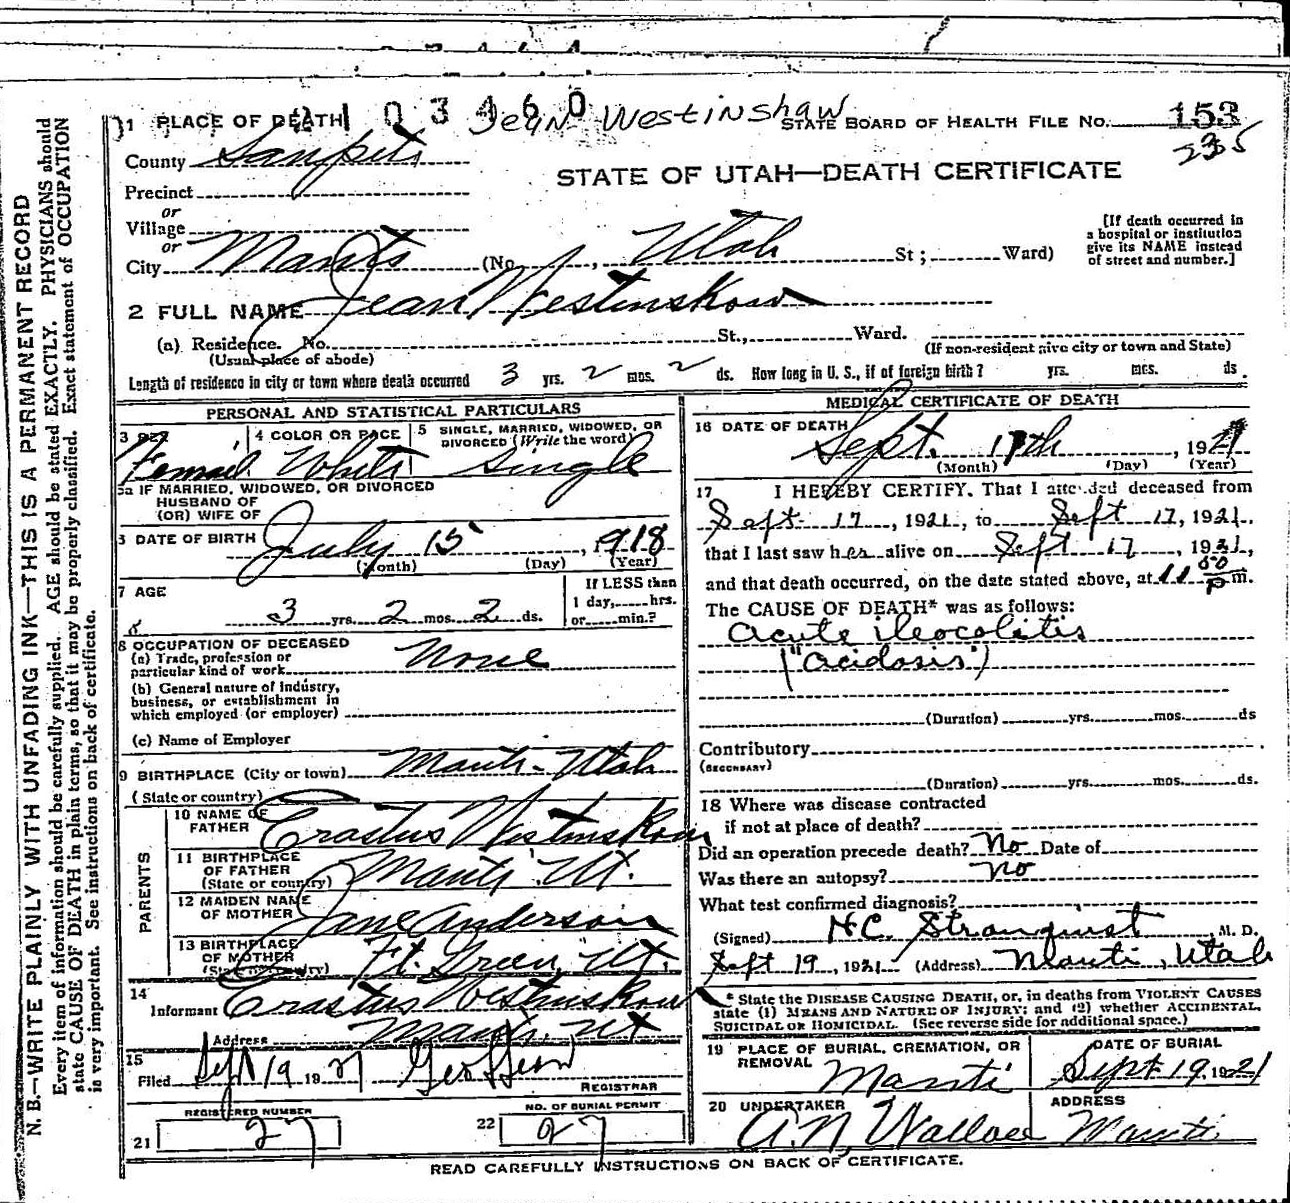 2103460 Jean Westinshaw
1 PLACE OF DEATH STATE BOARD OF HEALTH FILE NO. 153
235
County Sanpete
STATE OF UTAH—DEATH CERTIFICATE
Precinct
or
Village
or
City Manti (No. , Utah St ; Ward)
[If death occurred in
a hospital or institution
give its NAME instead
of street and number.]
2 FULL NAME Jean Westinskow
(a) Residence. No. St., Ward.
(Usual place of abode) (If non-resident give city or town and State)
Length of residence in city or town where death occurred 3 yrs. 2 mos. 2 ds. How long in U. S., if of foreign birth? yrs. mos. ds.
PERSONAL AND STATISTICAL PARTICULARS
3 SEX 4 COLOR OR RACE 5 SINGLE, MARRIED, WIDOWED, OR
DIVORCED (Write the word)
Female White Single
5a IF MARRIED, WIDOWED, OR DIVORCED
HUSBAND OF
(OR) WIFE OF
6 DATE OF BIRTH July 15, 1918
(Month) (Day) (Year)
7 AGE
If LESS than
1 day, hrs.
or min.?
3 yrs. 2 mos. 2 ds.
8 OCCUPATION OF DECEASED
(a) Trade, profession or
particular kind of work None
(b) General nature of industry,
business, or establishment in
which employed (or employer)
(c) Name of Employer
9 BIRTHPLACE (City or town) Manti - Utah
(State or country)
PARENTS
10 NAME OF
FATHER Erastus Westinskow
11 BIRTHPLACE
OF FATHER
(State or country) Manti, Ut.
12 MAIDEN NAME
OF MOTHER Jane Anderson
13 BIRTHPLACE
OF MOTHER
(State or country) Ft. Green, Ut.
14
Informant Erastus Westinskow
Address Manti, Ut
15
Filed Sept 19 1921
REGISTRAR
REGISTERED NUMBER
21 27
NO. OF BURIAL PERMIT
22 27
MEDICAL CERTIFICATE OF DEATH
16 DATE OF DEATH
Sept. 17th, 1921
(Month) (Day) (Year)
17 I HEREBY CERTIFY, That I attended deceased from
Sept 17, 1921, to Sept 17, 1921,
that I last saw her alive on Sept 17, 1921,
and that death occurred, on the date stated above, at 11 00 p m.
The CAUSE OF DEATH* was as follows:
Acute ileocolitis
("Acidosis")
(Duration) yrs. mos. ds
Contributory
(SECONDARY)
(Duration) yrs. mos. ds.
18 Where was disease contracted
if not at place of death?
Did an operation precede death? No Date of
Was there an autopsy? No
What test confirmed diagnosis?
(Signed) H.C. Stranquist, M. D.
Sept 19, 1921 (Address) Manti, Utah
* State the DISEASE CAUSING DEATH, or, in deaths from VIOLENT CAUSES
state (1) MEANS AND NATURE OF INJURY; and (2) whether ACCIDENTAL,
SUICIDAL OR HOMICIDAL. (See reverse side for additional space.)
19 PLACE OF BURIAL, CREMATION, OR
REMOVAL Manti
DATE OF BURIAL
Sept. 19, 1921
20 UNDERTAKER
A.N. Wallace
ADDRESS
Manti
READ CAREFULLY INSTRUCTIONS ON BACK OF CERTIFICATE.
N. B.—WRITE PLAINLY WITH UNFADING INK—THIS IS A PERMANENT RECORD
Every item of information should be carefully supplied. AGE should be stated EXACTLY. PHYSICIANS should
state CAUSE OF DEATH in plain terms, so that it may be properly classified. Exact statement of OCCUPATION
is very important. See instructions on back of certificate.